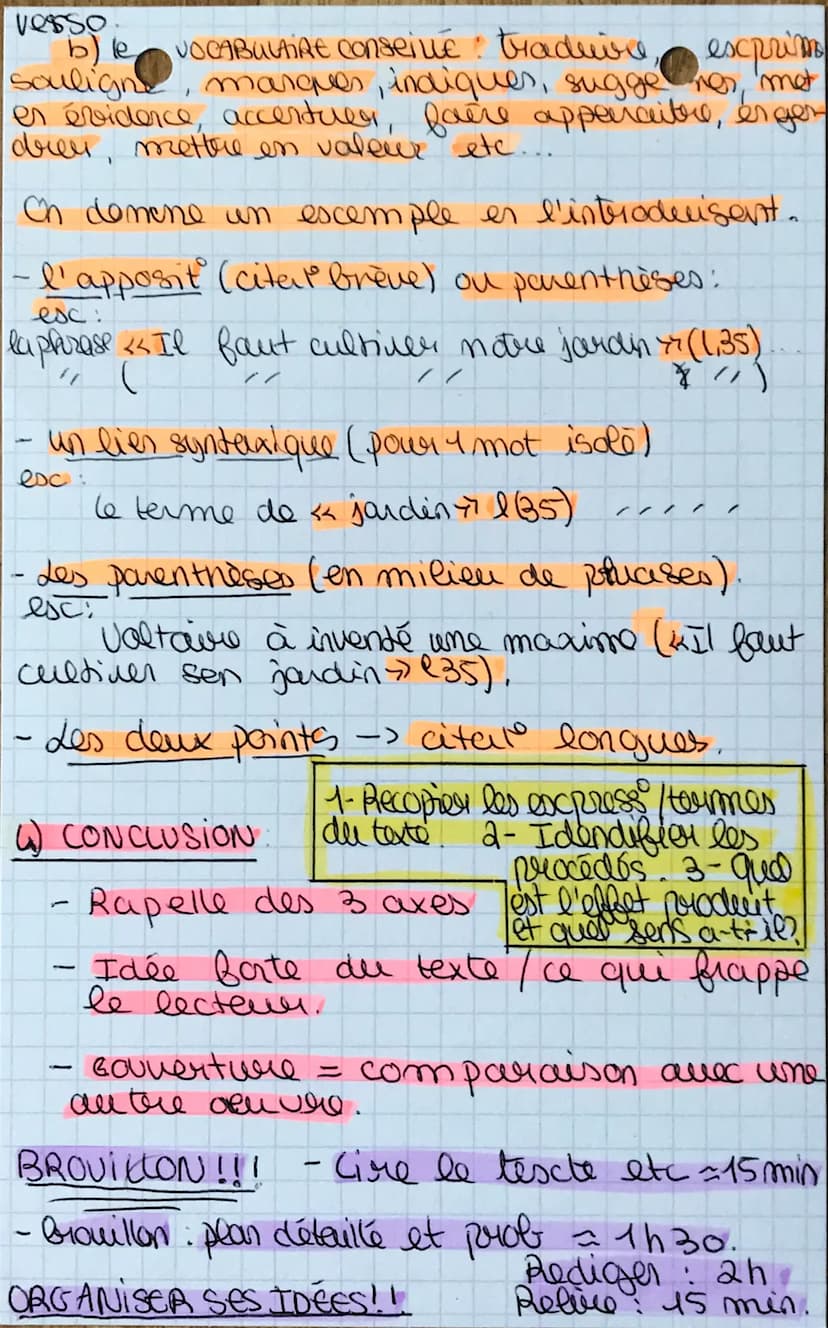 verso.
b) le VOCABULAIRE CONSEILLÉ : traduire, exprim
souligne, marquer, indiquer, suggérer, met
en évidence, accentuer, faire apparaître, engen-
drer, mettre en valeur etc...
On donne un exemple en l'introduisant.
- l'apposit° (citat° brève) ou parenthèses :
ex :
la phrase << Il faut cultiver notre jardin >> (l,35) ...
" ( " " " )
- un lien syntaxique (pour 1 mot isolé)
ex :
le terme de << jardin >> l(35) - - - - -
- des parenthèses (en milieu de phrases).
ex :
Voltaire à inventé une maxime (<< Il faut
cultiver son jardin >> l35).
- Les deux points -> citat° longues.
1- Recopier les express° / termes
du texte. 2- Idendifier les
procédés. 3- Quel
est l'effet produit
et quel sens a-t-il?
4) CONCLUSION :
- Rapelle des 3 axes
- Idée forte du texte / ce qui frappe
le lecteur.
- Ouverture = comparaison avec une
autre oeuvre.
BROUILLON !!! - Lire le texte etc ≈ 15 min
- Brouillon : plan détaillé et prob ≈ 1h30.
Rediger : 2h
ORGANISER SES IDÉES !! Relire : 15 min.